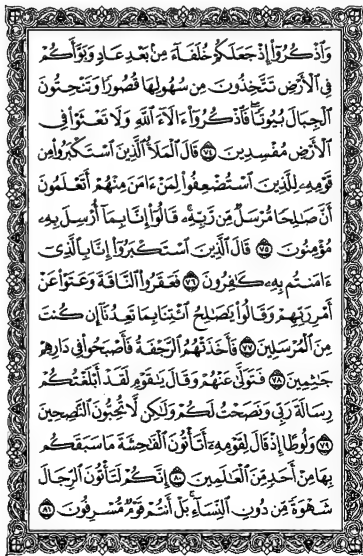 وَاذْكُرُوا إِذْ جَعَلَكُمْ خُلَفَاءَ مِنْ بَعْدِ عَادٍ وَبَوَّأَكُمْ
فِي الْأَرْضِ تَتَّخِذُونَ مِنْ سُهُولِهَا قُصُورًا وَتَنْحِتُونَ
الْجِبَالَ بُيُوتًا فَاذْكُرُوا ءَالَاءَ اللَّهِ وَلَا تَعْثَوْا فِي
الْأَرْضِ مُفْسِدِينَ ٧٤ قَالَ الْمَلَأُ الَّذِينَ اسْتَكْبَرُوا مِنْ
قَوْمِهِ لِلَّذِينَ اسْتُضْعِفُوا لِمَنْ ءَامَنَ مِنْهُمْ أَتَعْلَمُونَ
أَنَّ صَالِحًا مُرْسَلٌ مِنْ رَبِّهِ قَالُوا إِنَّا بِمَا أُرْسِلَ بِهِ
مُؤْمِنُونَ ٧٥ قَالَ الَّذِينَ اسْتَكْبَرُوا إِنَّا بِالَّذِي
ءَامَنْتُمْ بِهِ كَافِرُونَ ٧٦ فَعَقَرُوا النَّاقَةَ وَعَتَوْا عَنْ
أَمْرِ رَبِّهِمْ وَقَالُوا يَصَالِحُ ائْتِنَا بِمَا تَعِدُنَا إِنْ كُنْتَ
مِنَ الْمُرْسَلِينَ ٧٧ فَأَخَذَتْهُمُ الرَّجْفَةُ فَأَصْبَحُوا فِي دَارِهِمْ
جَاثِمِينَ ٧٨ فَتَوَلَّى عَنْهُمْ وَقَالَ يَقَوْمِ لَقَدْ أَبْلَغْتُكُمْ
رِسَالَةَ رَبِّي وَنَصَحْتُ لَكُمْ وَلَكِنْ لَا تُحِبُّونَ النَّصِحِينَ
٧٩ وَلُوطًا إِذْ قَالَ لِقَوْمِهِ أَتَأْتُونَ الْفَاحِشَةَ مَا سَبَقَكُمْ
بِهَا مِنْ أَحَدٍ مِنَ الْعَالَمِينَ ٨٠ إِنَّكُمْ لَتَأْتُونَ الرِّجَالَ
شَهْوَةً مِنْ دُونِ النِّسَاءِ بَلْ أَنْتُمْ قَوْمٌ مُسْرِفُونَ ٨١